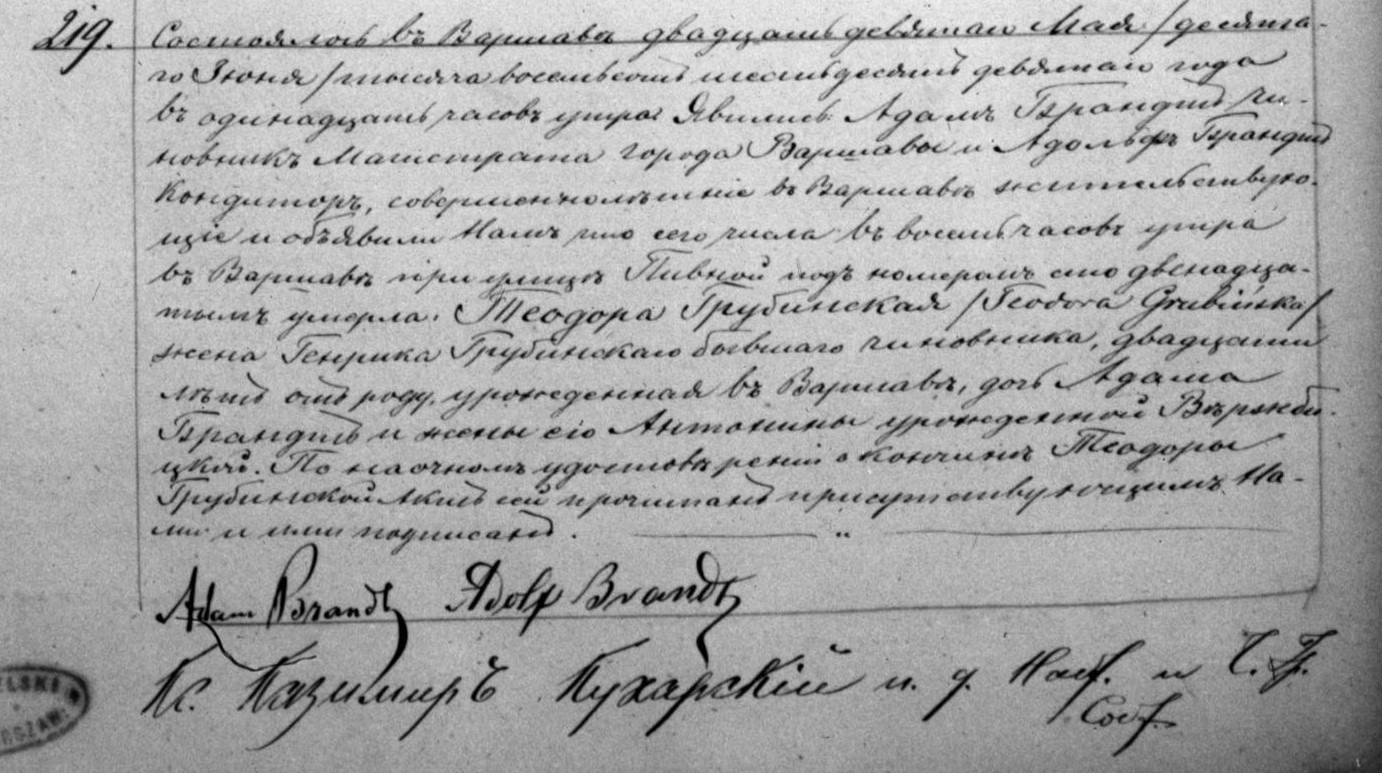 219. Состоялось въ Варшавѣ двадцать девятаго Мая /десята-
го Іюня/ тысяча восемьсотъ шестьдесятъ девятаго года
въ одинадцать часовъ утра. Явились: Адамъ Брандтъ чи-
новникъ Магистрата города Варшавы и Адольфъ Брандтъ
Кондиторъ, совершеннолѣтніе въ Варшавѣ жительствую-
щіе и объявили Намъ что сего числа въ восемь часовъ утра
въ Варшавѣ при улицѣ Пивной подъ номеромъ сто двенадца-
тымъ умерла: Теодора Грубинская /Teodora Grubińska/
жена Генрика Грубинскаго бывшаго чиновника, двадцати
лѣтъ отъ роду, урожденная въ Варшавѣ, дочь Адама
Брандтъ и жены его Антонины урожденной Вържби-
цкой. По наочномъ удостовѣреніи о кончинѣ Теодоры
Грубинской Актъ сей прочитанъ присутствующимъ На-
ми и ими подписанъ.
Adam Brandt Adolf Brandt
Кс. Казимиръ Кухарскій и. д. Наст. и Ч. Гр.
Сост.
ELSKI
RSZAW.